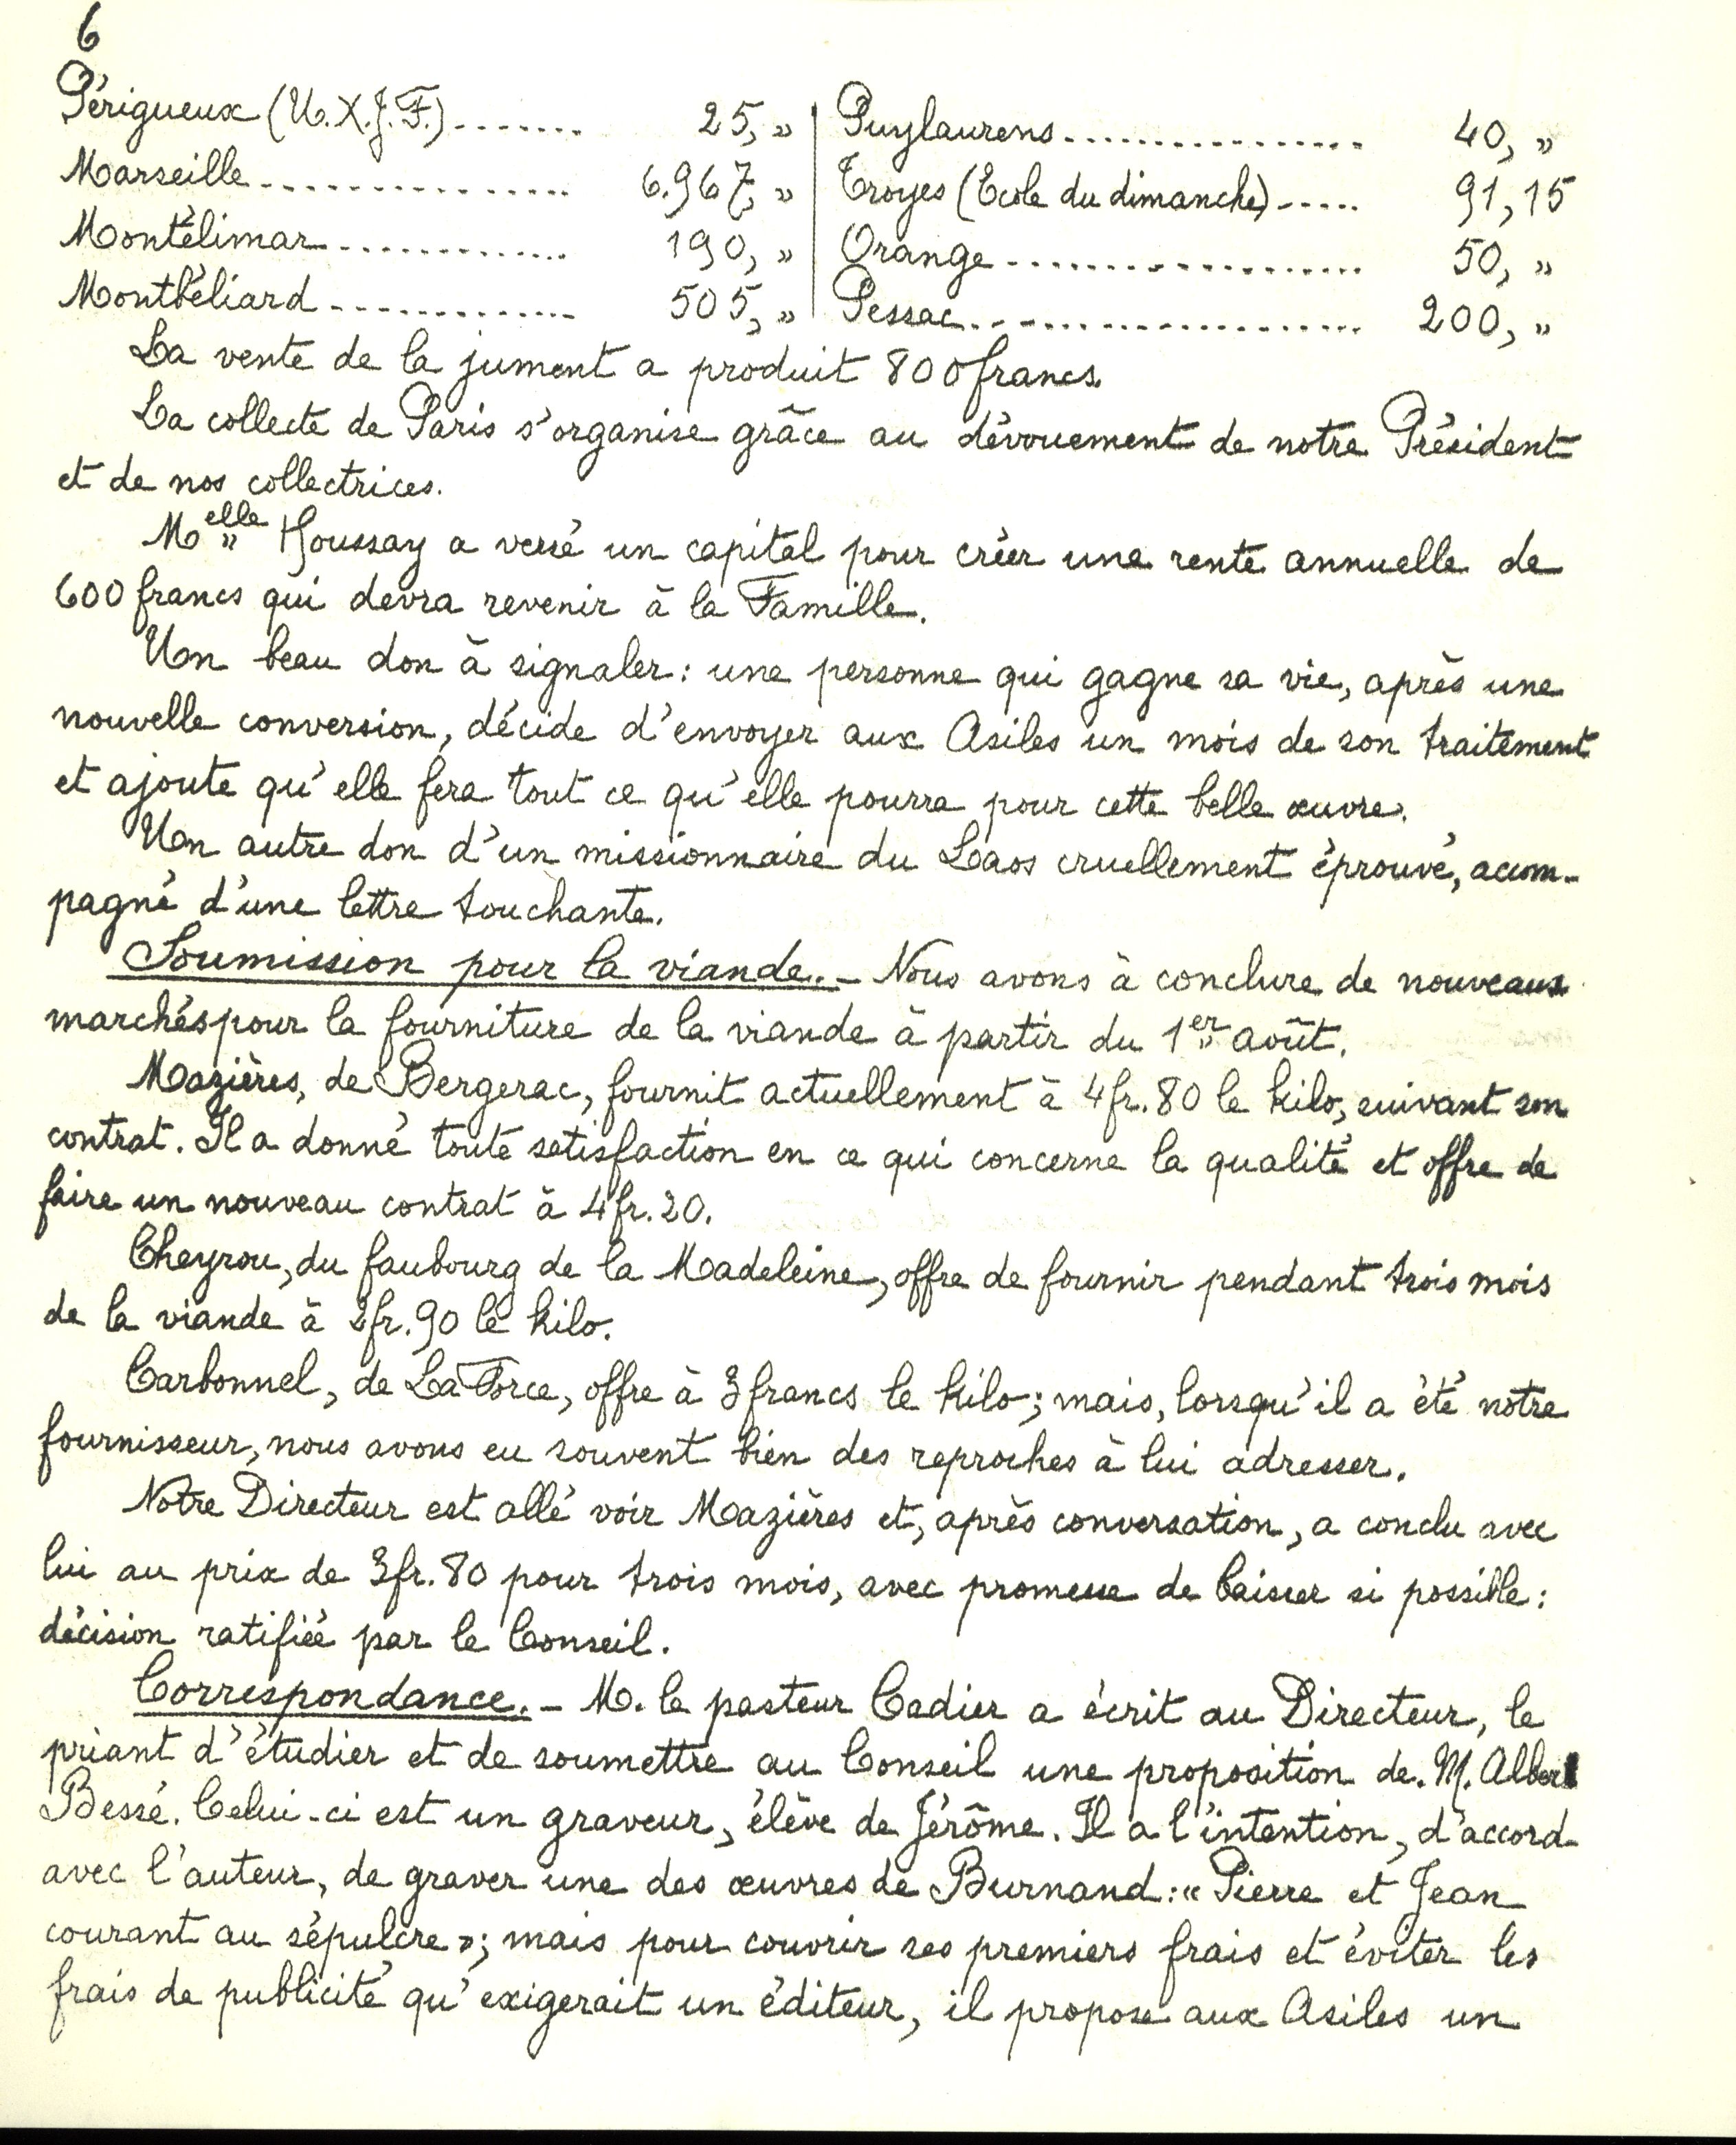 6
Périgueux (U.X.J.F.)....... 25, » | Puylaurens................ 40, »
Marseille................ 6.967, » | Troyes (Ecole du dimanche)..... 91,15
Montélimar............. 190, » | Orange.................... 50, »
Montbéliard.............. 505, » | Pessac...................... 200, »
La vente de la jument a produit 800 francs.
La collecte de Paris s'organise grâce au dévouement de notre Président
et de nos collectrices.
Melle Houssay a versé un capital pour créer une rente annuelle de
600 francs qui devra revenir à la Famille.
Un beau don à signaler : une personne qui gagne sa vie, après une
nouvelle conversion, décide d'envoyer aux Asiles un mois de son traitement
et ajoute qu'elle fera tout ce qu'elle pourra pour cette belle œuvre.
Un autre don d'un missionnaire du Laos cruellement éprouvé, accom-
pagné d'une lettre touchante.
Soumission pour la viande. - Nous avons à conclure de nouveaux
marchés pour la fourniture de la viande à partir du 1er août.
Mazières, de Bergerac, fournit actuellement à 4 fr. 80 le kilo, suivant son
contrat. Il a donné toute satisfaction en ce qui concerne la qualité et offre de
faire un nouveau contrat à 4 fr. 20.
Cheyrou, du faubourg de la Madeleine, offre de fournir pendant trois mois
de la viande à 2 fr. 90 le kilo.
Carbonnel, de La Force, offre à 3 francs le kilo ; mais, lorsqu'il a été notre
fournisseur, nous avons eu souvent bien des reproches à lui adresser.
Notre Directeur est allé voir Mazières et, après conversation, a conclu avec
lui au prix de 3 fr. 80 pour trois mois, avec promesse de baisser si possible :
décision ratifiée par le Conseil.
Correspondance. - M. le pasteur Cadier a écrit au Directeur, le
priant d'étudier et de soumettre au Conseil une proposition de M. Albert
Bessé. Celui-ci est un graveur, élève de Jérôme. Il a l'intention, d'accord
avec l'auteur, de graver une des œuvres de Burnand : « Pierre et Jean
courant au sépulcre » ; mais pour couvrir ses premiers frais et éviter les
frais de publicité qu'exigerait un éditeur, il propose aux Asiles un